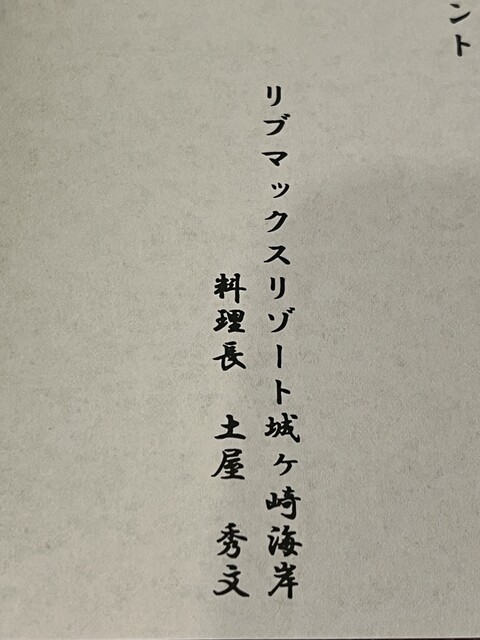 ント
リブマックスリゾート城ヶ崎海岸
料理長 土屋 秀文